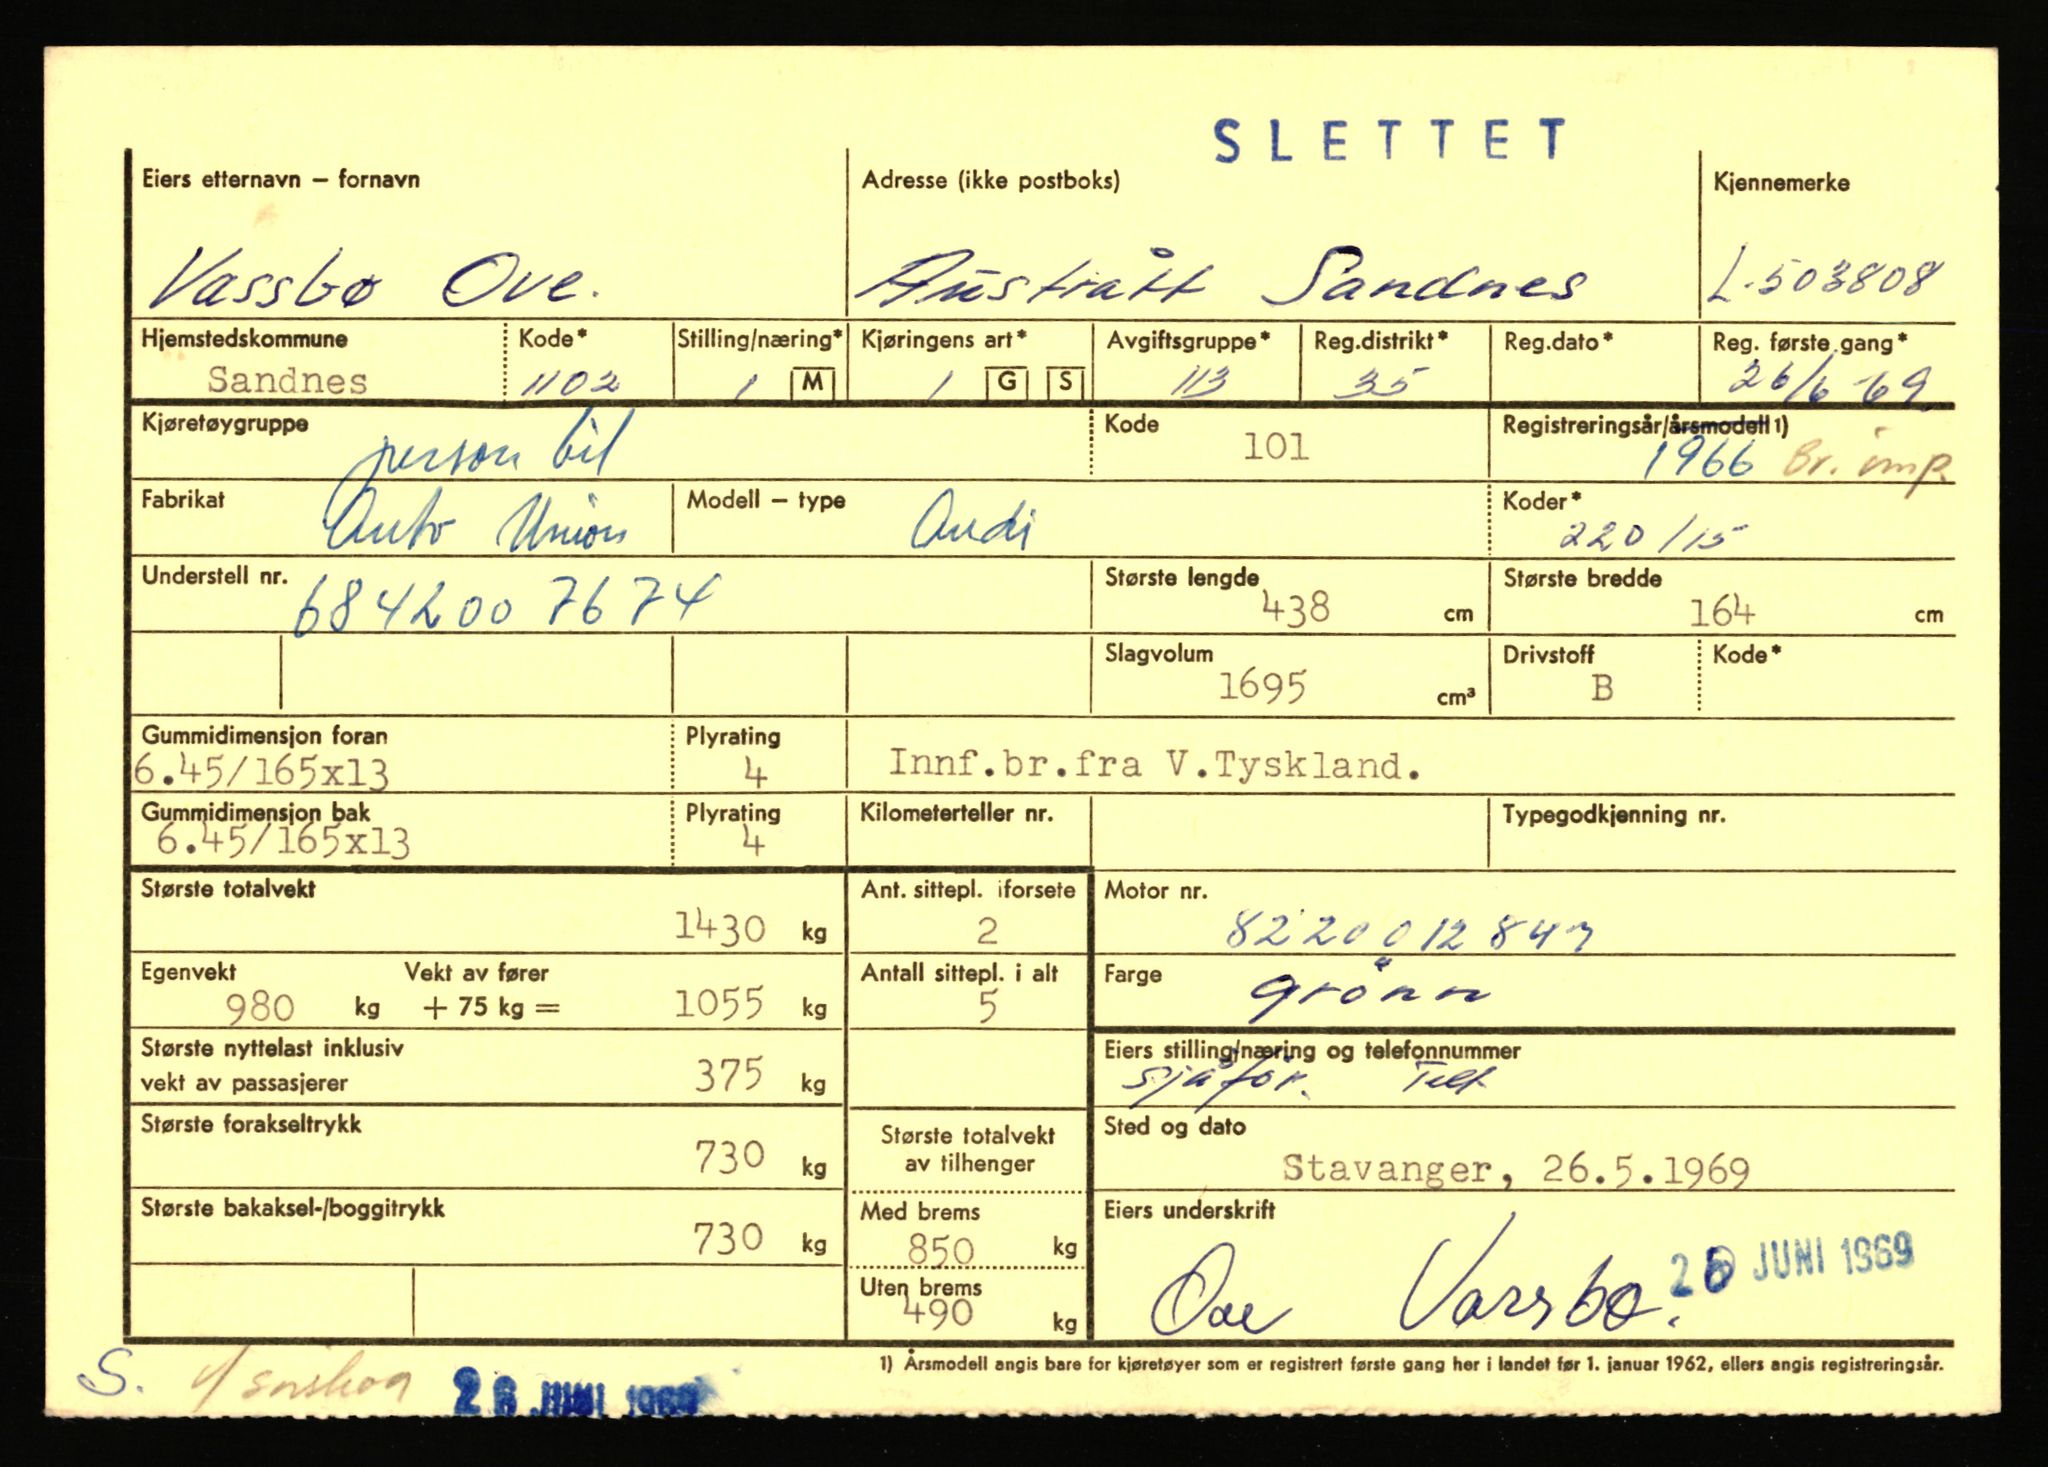 SLETTET
Eiers etternavn – fornavn Adresse (ikke postboks) Kjennemerke
Vassbø Ove. Austrått Sandnes L-503808
Hjemstedskommune Kode* Stilling/næring* Kjøringens art* Avgiftsgruppe* Reg.distrikt* Reg.dato* Reg. første gang*
Sandnes 1102 1 M 1 G S 113 35 26/6-69
Kjøretøygruppe Kode Registreringsår/årsmodell 1)
person bil 101 1966 Br. imp.
Fabrikat Modell – type Koder*
Auto Union Audi 220/15
Understell nr. Største lengde Største bredde
6842007674 438 cm 164 cm
Slagvolum Drivstoff Kode*
1695 cm³ B
Gummidimensjon foran Plyrating
6.45/165x13 4 Innf.br.fra V.Tyskland.
Gummidimensjon bak Plyrating Kilometerteller nr. Typegodkjenning nr.
6.45/165x13 4
Største totalvekt Ant. sittepl. iforsete Motor nr.
1430 kg 2 8220012847
Egenvekt Vekt av fører Antall sittepl. i alt Farge
980 kg + 75 kg = 1055 kg 5 grönn
Største nyttelast inklusiv Eiers stilling/næring og telefonnummer
vekt av passasjerer 375 kg sjåfør. Telf
Største forakseltrykk Største totalvekt Sted og dato
730 kg av tilhenger Stavanger, 26.5.1969
Største bakaksel-/boggitrykk Med brems Eiers underskrift
730 kg 850 kg 26 JUNI 1969
Uten brems Ove Vassbø.
490 kg
1) Årsmodell angis bare for kjøretøyer som er registrert første gang her i landet før 1. januar 1962, ellers angis registreringsår.
S. 26 JUNI 1969